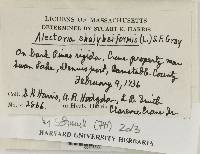 LICHENS OF MASSACHUSETTS
DETERMINED BY STUART K. HARRIS
Alectoria chalybeiformis (L.) S.F. Gray
On bark Pinus rigida, Crane property, near
Swan Lake, Dennisport, Barnstable County
February 9, 1936
Col. S.K. Harris, A.R. Hodgdon, L.B. Smith
No. 2666. Clarence Crane Jr.
2013
HARVARD UNIVERSITY HERBARIA